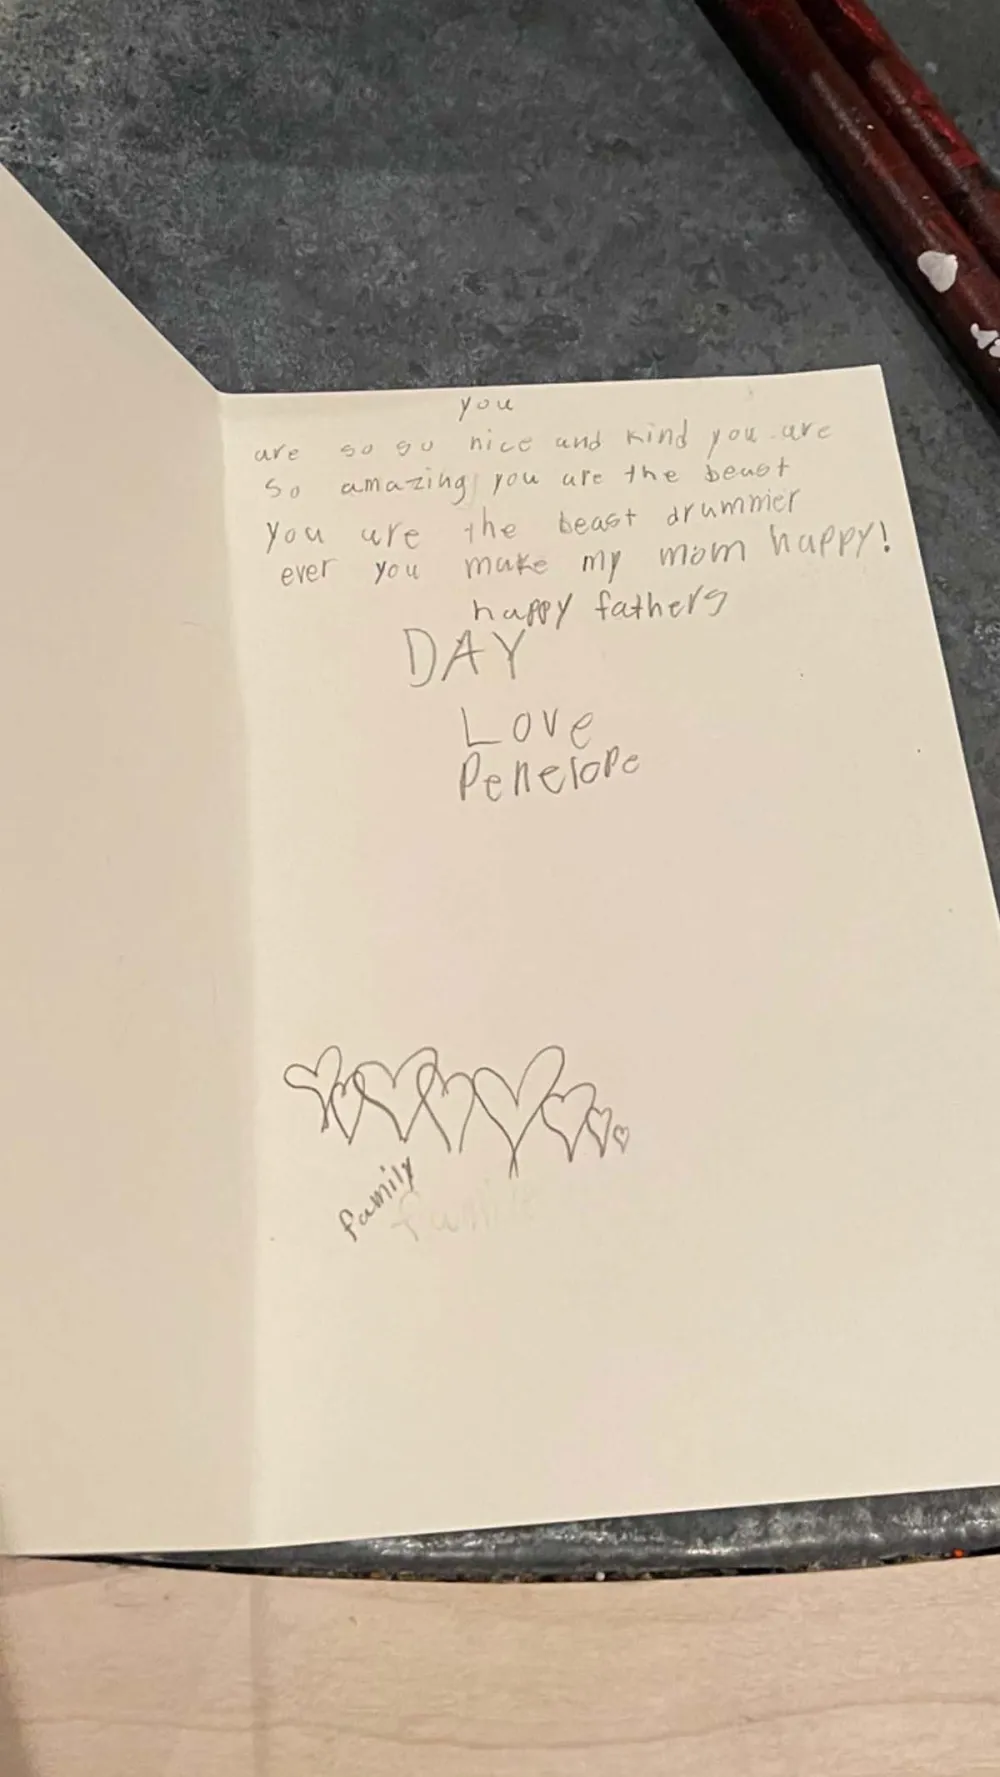 you
are so so nice and kind you are
so amazing you are the beast
you are the beast drummer
ever you make my mom happy!
happy fathers
DAY
Love
Penelope
family